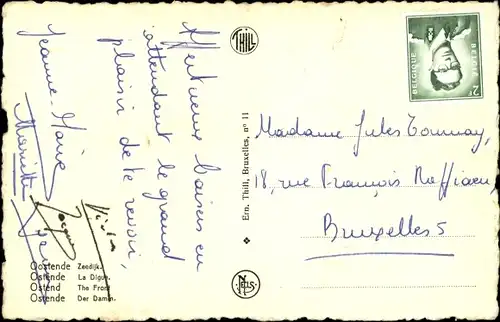 Affectueux baisers en
attendant le grand
plaisir de te revoir,
Jeanne-Marie
Mariette
Jacques
THILL
Ern. Thill, Bruxelles, n° 11
NELS
BELGIQUE BELGIE
2F
Madame Jules Tournay,
18, rue François Roffiaen,
Bruxelles 5
Oostende Zeedijk.
Ostende La Digue.
Ostend The Front
Ostende Der Damm.